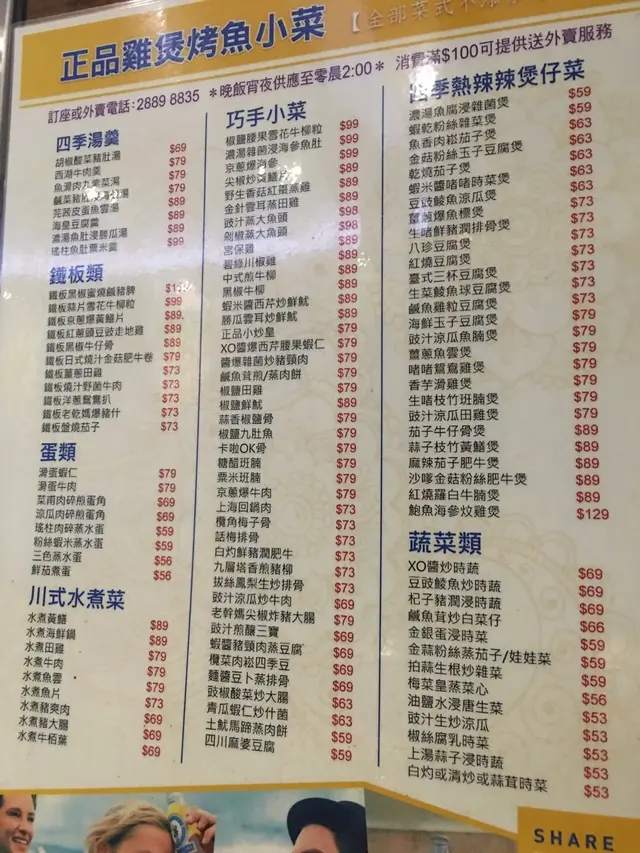 正品雞煲烤魚小菜
訂座或外賣電話:2889 8835 *晚飯宵夜供應至零晨2:00* 消費滿$100可提供送外賣服務
四季湯羹
胡椒酸菜豬肚湯 $69
西湖牛肉羹 $79
魚滑肉丸紫菜湯 $79
$89
芫茜皮蛋魚雲湯 $89
海皇豆腐羹 $89
濃湯魚肚浸勝瓜湯 $89
瑤柱魚肚粟米羹 $99
鐵板類
鐵板黑椒蜜燒鹹豬脾
鐵板蒜片雪花牛柳粒 $99
鐵板京蔥爆黃鱔片 $89
鐵板紅蔥頭豆豉走地雞 $89
鐵板黑椒牛仔骨 $89
鐵板日式燒汁金菇肥牛卷 $79
鐵板薑蔥田雞 $73
鐵板燒汁野菌牛肉 $73
鐵板洋蔥鴛鴦扒 $73
鐵板老乾媽爆豬什 $73
鐵板盤燒茄子 $73
蛋類
滑蛋蝦仁 $79
滑蛋牛肉 $79
菜甫肉碎煎蛋角 $69
涼瓜肉碎煎蛋角 $69
瑤柱肉碎蒸水蛋 $59
粉絲蝦米蒸水蛋 $59
三色蒸水蛋 $56
鮮茄煮蛋 $56
川式水煮菜
水煮黃鱔 $89
水煮海鮮鍋 $89
水煮田雞 $79
水煮牛肉 $79
水煮魚雲 $79
水煮魚片 $73
水煮豬爽肉 $69
水煮豬大腸 $69
水煮牛栢葉 $69
巧手小菜
椒鹽腰果雪花牛柳粒 $99
濃湯雜菌浸海參魚肚 $99
京蔥爆海參 $89
尖椒炒黃鱔片 $89
野生香菇紅棗蒸雞 $89
金針雲耳蒸田雞 $89
豉汁蒸大魚頭 $98
剁椒蒸大魚頭 $98
宮保雞 $89
碧綠川椒雞 $89
中式煎牛柳 $89
黑椒牛柳 $89
蝦米醬西芹炒鮮魷 $89
勝瓜雲耳炒鮮魷 $89
正品小炒皇 $79
XO醬爆西芹腰果蝦仁 $79
醬爆雜菌炒豬頸肉 $79
鹹魚茸煎/蒸肉餅 $79
椒鹽田雞 $79
椒鹽鮮魷 $89
蒜香椒鹽骨 $79
椒鹽九肚魚 $79
卡啦OK骨 $79
糖醋班腩 $79
粟米班腩 $79
京蔥爆牛肉 $79
上海回鍋肉 $73
欖角梅子骨 $73
話梅排骨 $73
白灼鮮豬潤肥牛 $73
九層塔香煎豬柳 $73
拔絲鳳梨生炒排骨 $73
豉汁涼瓜炒牛肉 $69
老幹媽尖椒炸豬大腸 $79
豉汁煎釀三寶 $69
蝦醬豬頸肉蒸豆腐 $69
欖菜肉崧四季豆 $69
麵醬豆卜蒸排骨 $69
豉椒酸菜炒大腸 $63
青瓜蝦仁炒什菌 $63
土魷馬蹄蒸肉餅 $59
四川麻婆豆腐 $59
四季熱辣辣煲仔菜
濃湯魚腐浸雜菌煲 $59
蝦乾粉絲雜菜煲 $59
魚香肉崧茄子煲 $63
金菇粉絲玉子豆腐煲 $63
乾燒茄子煲 $63
蝦米醬啫啫時菜煲 $63
豆豉鯪魚涼瓜煲 $63
薑蔥爆魚標煲 $73
生啫鮮豬潤排骨煲 $73
八珍豆腐煲 $73
紅燒豆腐煲 $73
臺式三杯豆腐煲 $73
生菜鯪魚球豆腐煲 $73
鹹魚雞粒豆腐煲 $73
海鮮玉子豆腐煲 $79
豉汁涼瓜魚腩煲 $79
薑蔥魚雲煲 $79
啫啫鴛鴦雞煲 $79
香芋滑雞煲 $79
生啫枝竹班腩煲 $79
豉汁涼瓜田雞煲 $79
茄子牛仔骨煲 $89
蒜子枝竹黃鱔煲 $89
麻辣茄子肥牛煲 $89
沙嗲金菇粉絲肥牛煲 $89
紅燒羅白牛腩煲 $89
鮑魚海參炆雞煲 $129
蔬菜類
XO醬炒時蔬 $69
豆豉鯪魚炒時蔬 $69
杞子豬潤浸時蔬 $69
鹹魚茸炒白菜仔 $66
金銀蛋浸時菜 $59
金蒜粉絲蒸茄子/娃娃菜 $59
拍蒜生根炒雜菜 $59
梅菜皇蒸菜心 $56
油鹽水浸唐生菜 $53
豉汁生炒涼瓜 $53
椒絲腐乳時菜 $53
上湯蒜子浸時蔬 $53
白灼或清炒或蒜茸時菜 $53
SHARE